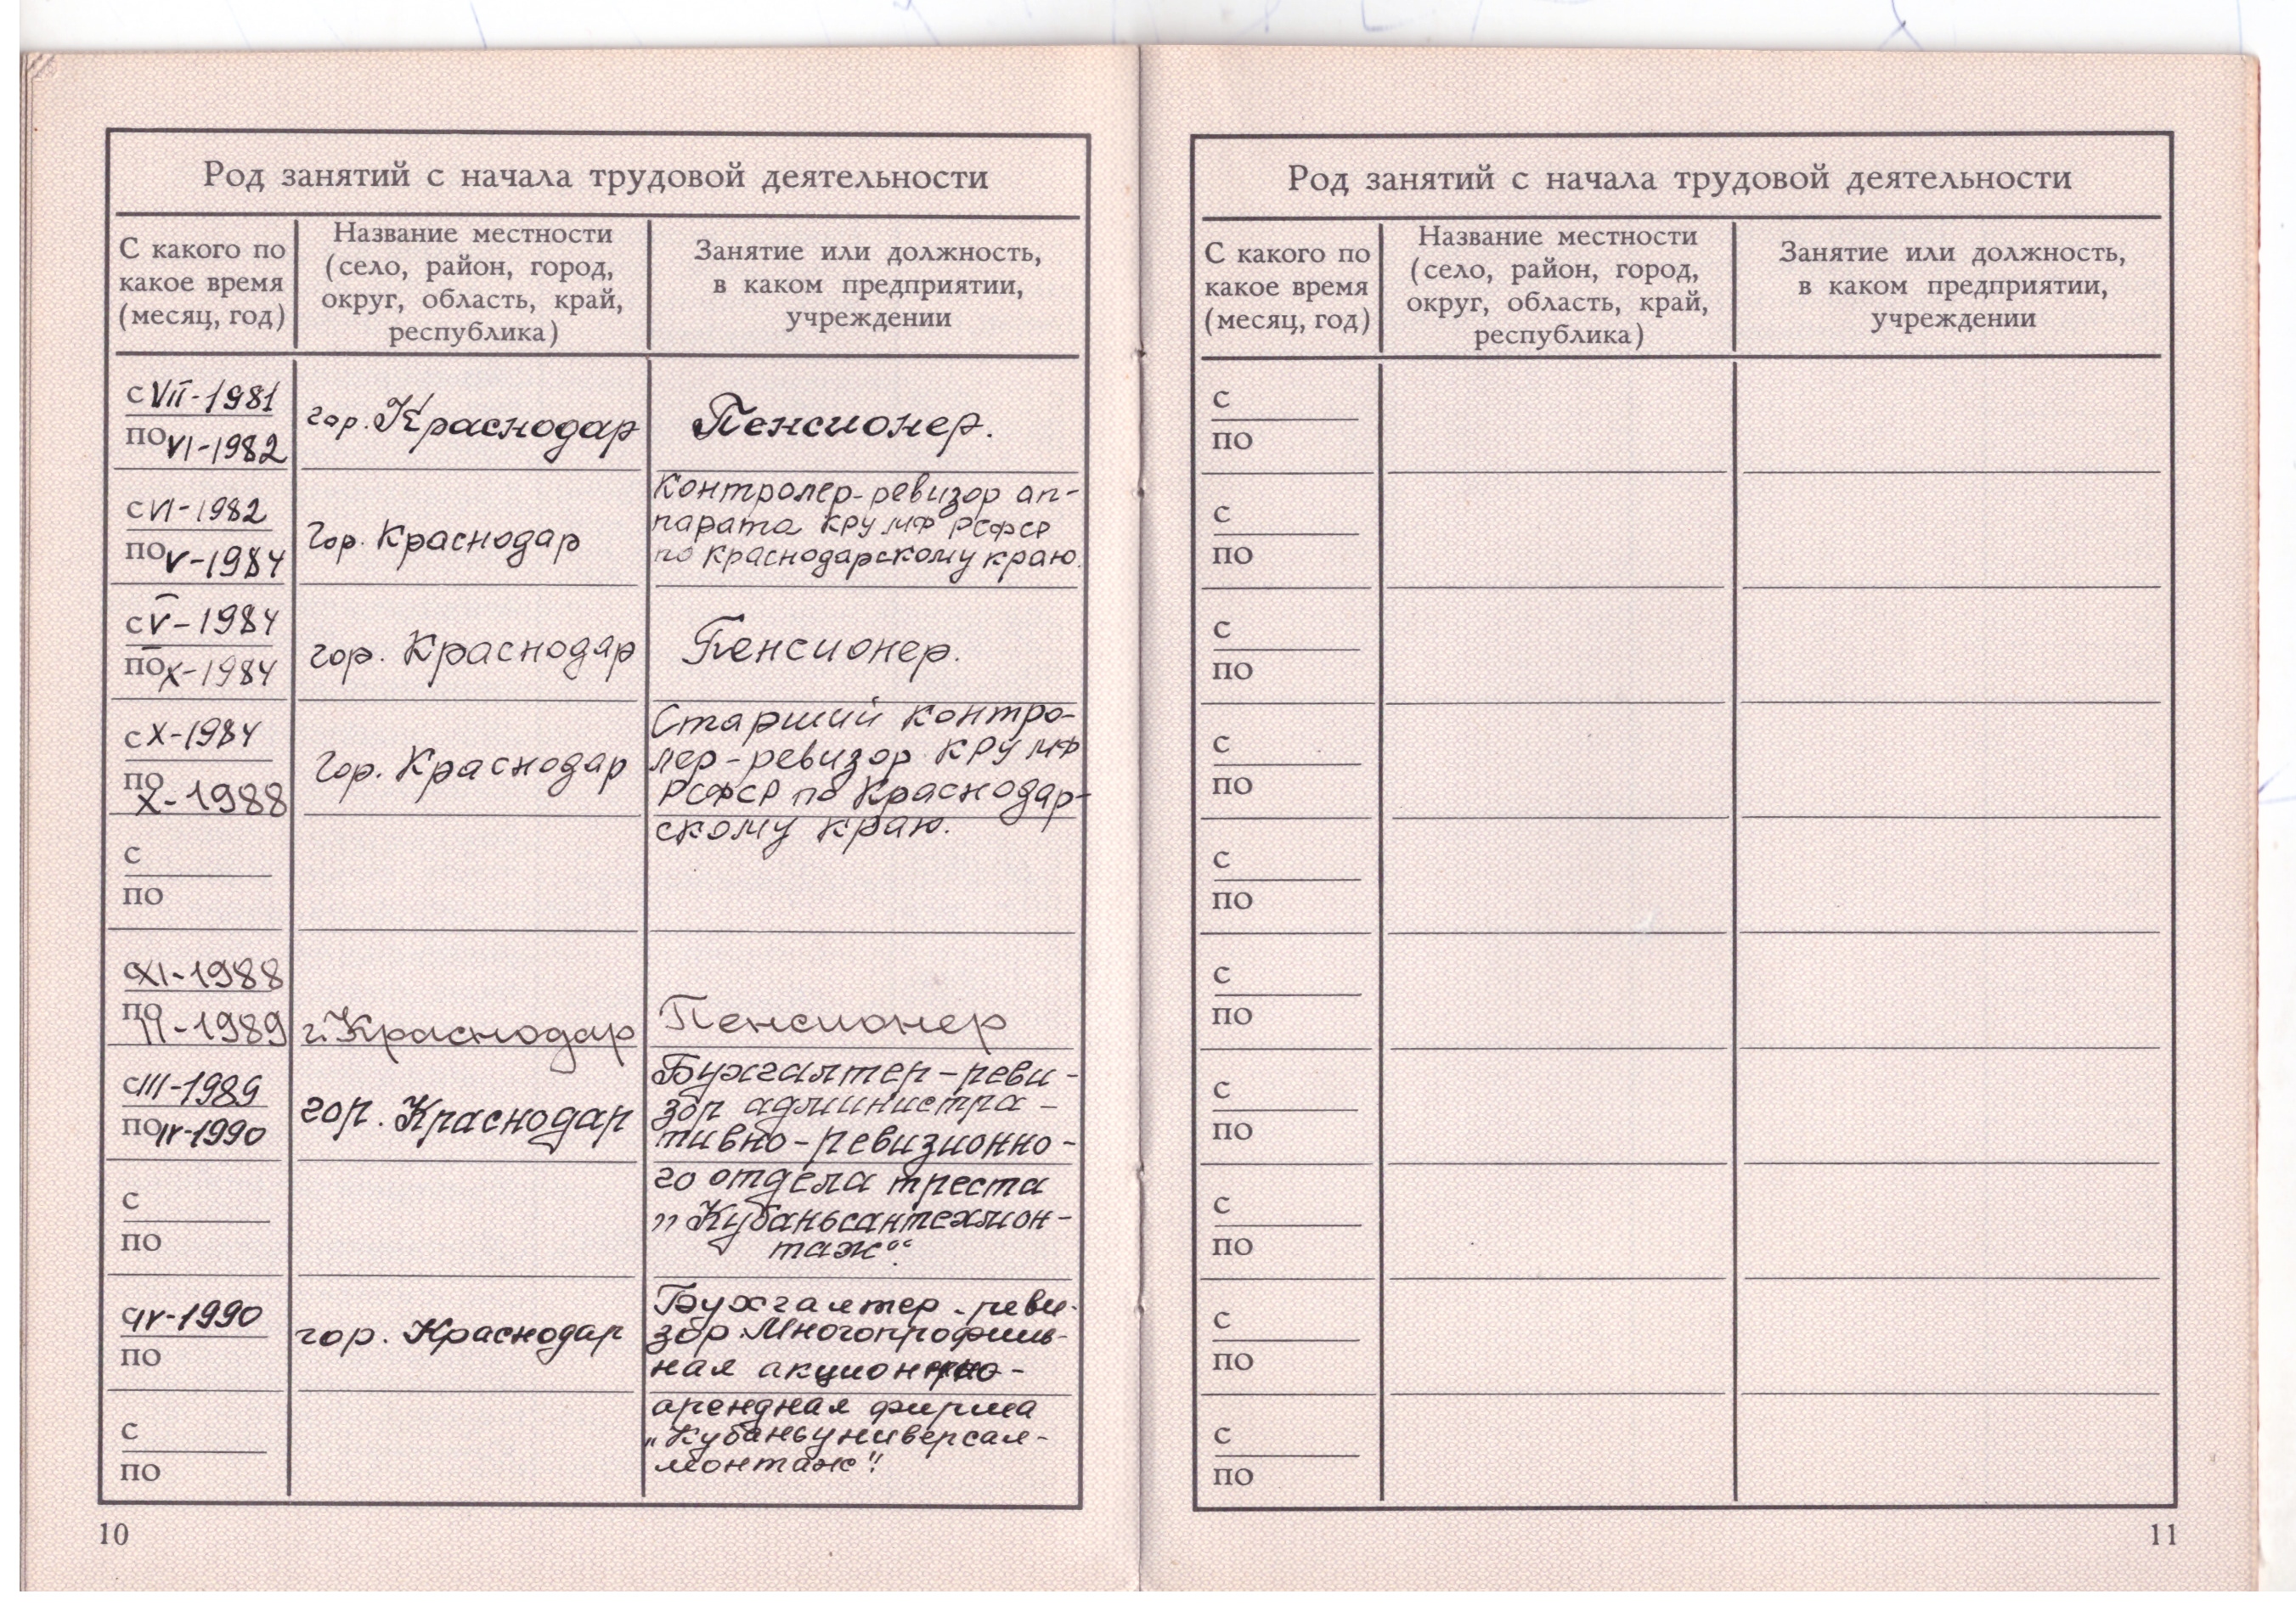 Род занятий с начала трудовой деятельности
С какого по
какое время
(месяц, год)
Название местности
(село, район, город,
округ, область, край,
республика)
Занятие или должность,
в каком предприятии,
учреждении
с VII-1981
по VI-1982
гор. Краснодар
Пенсионер.
с VI-1982
по V-1984
гор. Краснодар
Контролер-ревизор ап-
парата КРУ МФ РСФСР
по Краснодарскому краю.
с V-1984
по X-1984
гор. Краснодар
Пенсионер.
с X-1984
по X-1988
гор. Краснодар
Старший контро-
лер-ревизор КРУ МФ
РСФСР по Краснодар-
скому краю.
с
по
с XI-1988
по II-1989
г. Краснодар
Пенсионер
с III-1989
по IV-1990
гор. Краснодар
Бухгалтер-реви-
зор администра-
тивно-ревизионно-
го отдела треста
„Кубаньсантехмон-
таж“.
с
по
с IV-1990
по
гор. Краснодар
Бухгалтер-реви-
зор Многопрофиль-
ная акционерно-
арендная фирма
„Кубаньуниверсал-
монтаж".
с
по
10
Род занятий с начала трудовой деятельности
С какого по
какое время
(месяц, год)
Название местности
(село, район, город,
округ, область, край,
республика)
Занятие или должность,
в каком предприятии,
учреждении
с
по
с
по
с
по
с
по
с
по
с
по
с
по
с
по
с
по
с
по
11